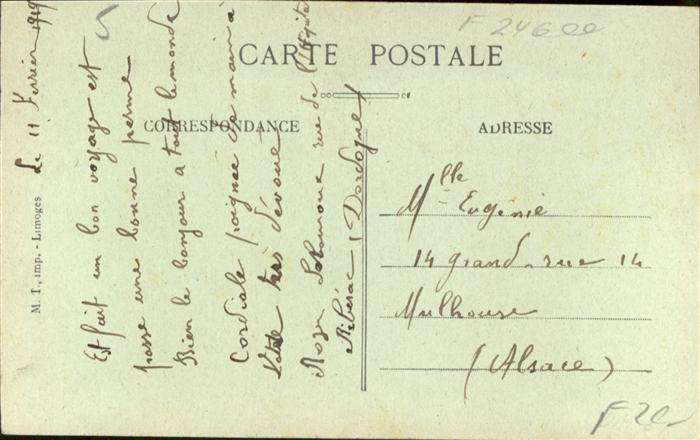 F 24600
CARTE POSTALE
CORRESPONDANCE
ADRESSE
M. T., imp. - Limoges
Le 11 Février 1919
Est fait un bon voyage est
passe une bonne perme
Bien le bonjour a tout le monde
Cordiale poignee de main à
Votre très dévoué
rue de l'Hopital
Ribérac (Dordogne)
Mlle Eugénie
14 grand. rue 14
Mulhouse
(Alsace)
F 20-